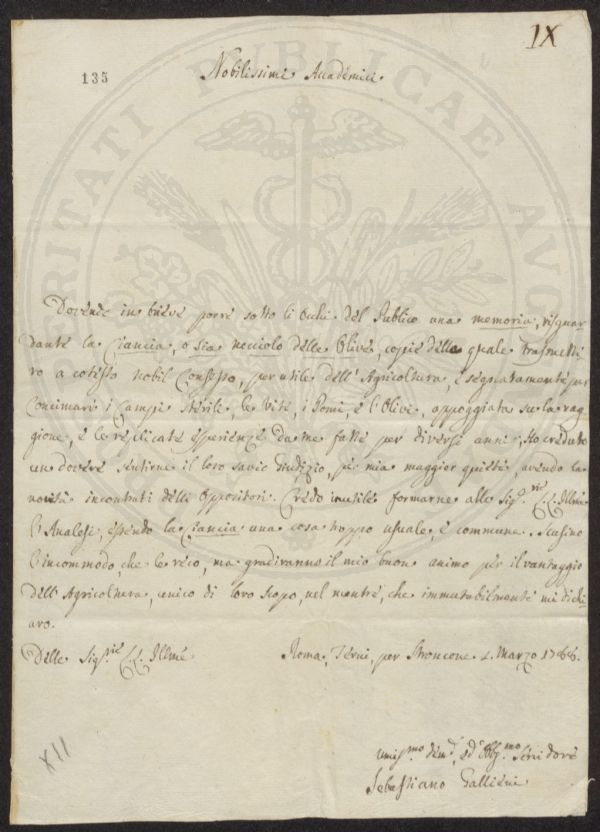 IX
135
Nobilissimi Accademici
Dovendo in breve porre sotto li Ochi del Publico una memoria, risguar-
dante la Ciancia, o sia nocciolo delle Olive, copie della quale trasmetti-
ro a cotesto nobil Consesso, per utile dell' Agricoltura, e segnatamente per
Concimare i Campi sterili, le Vite, i Pomi, e l'Olive, appoggiata su la rag-
gione, e le replicate esperienze da me fatte per diversi anni, Ho creduto
un dovere sentirne il loro savio Giudizio, per mia maggior quiete, avendo la
novità incontrati delli Oppositori. Credo inutile formarne alle Sig.rie L.L. Illme
l'Analesi, essendo la Ciancia una cosa troppo usuale, e commune. Scusino
l'incommodo, che le reco, ma gradiranno il mio buon animo per il vantaggio
dell' Agricoltura, unico di loro scopo, nel mentre, che immutabilmente mi dichi-
aro.
Delle Sig.rie L.L. Illme
Roma, Terni, per Stroncone Marzo
Umiss.mo dev.° ed Obbg.mo Servidore
Sebastiano Gallieni
XII
PUBLICAE